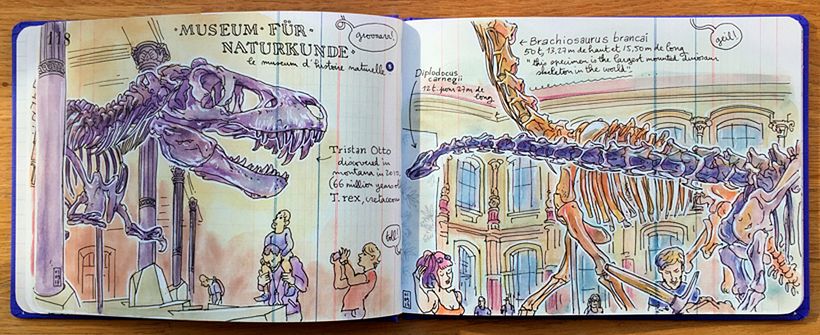 118
MUSEUM · FÜR
NATURKUNDE
le museum d'histoire naturelle
grooaar!
Tristan Otto
discovered in
montana in 2010
(66 million years old
T. rex, cretaceous
toll!
← Brachiosaurus brancai
50t, 13,27m de haut et 15,50m de long
"this specimen is the largest mounted dinosaur
skeleton in the world"
geil!
Diplodocus
carnegii
12t. pour 27m de
long